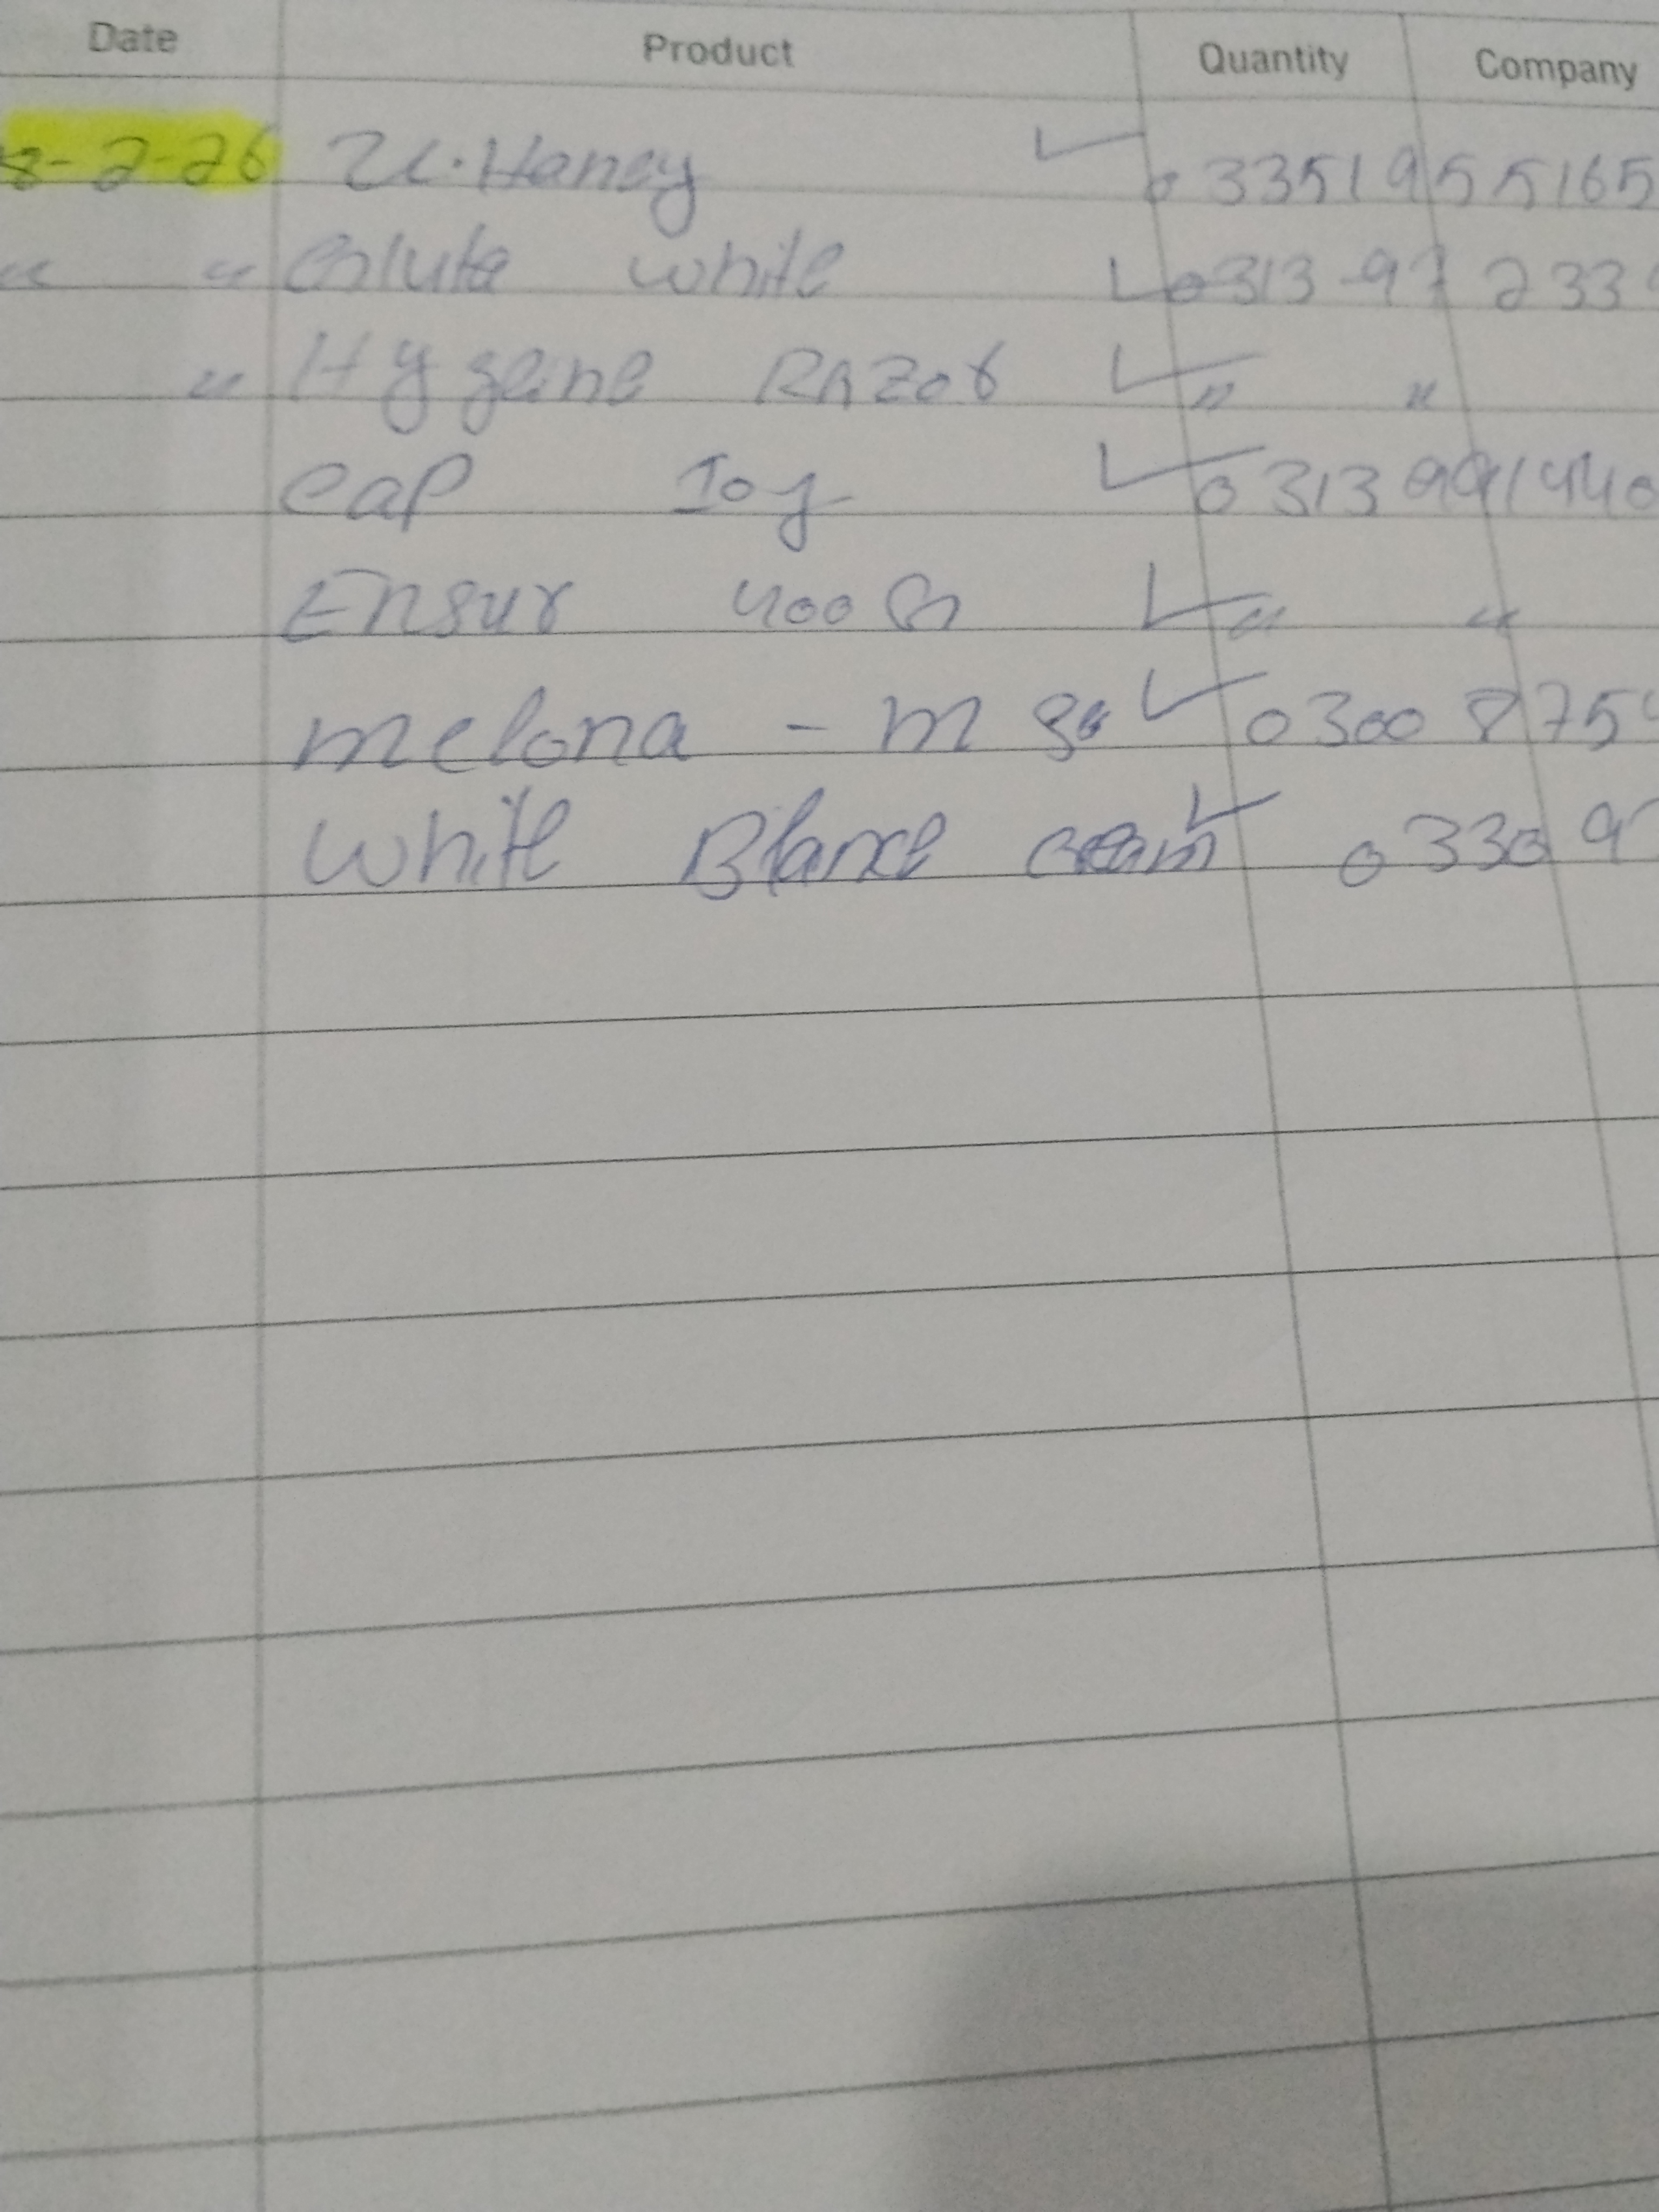 Date Product Quantity Company
8-2-26 U.Haney ✓ 03351955165
" " Gluta white ✓ 0313-97 2339
" Hygeine RAZOR ✓ " "
Cap Joy ✓ 0313 9991440
Ensur 400 G ✓ " "
melona - m ✓ 0300 875
white Blance cream ✓ 0330 9